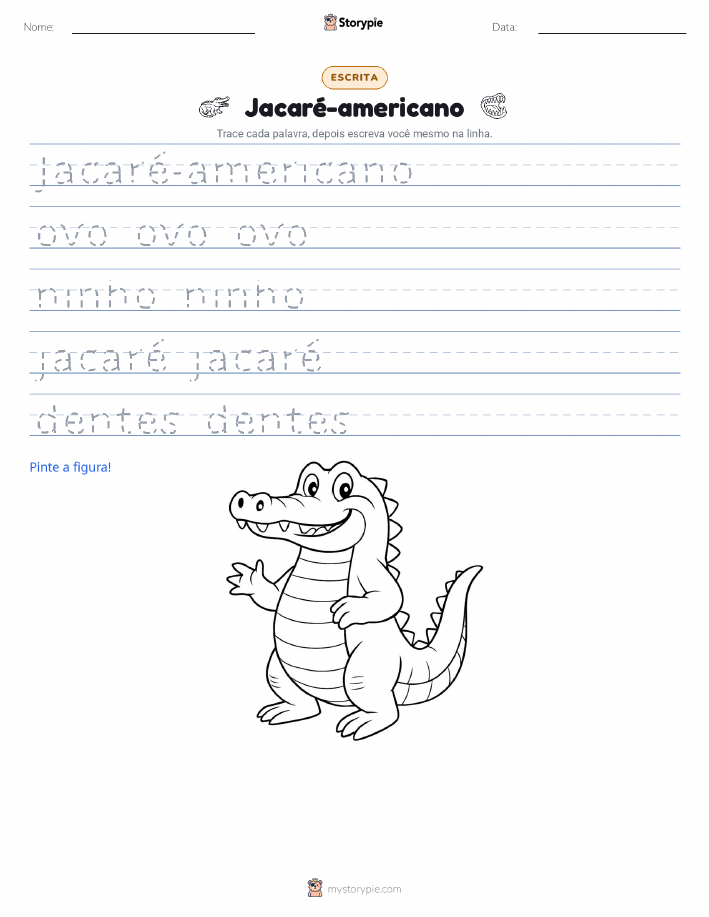 Nome:
Storypie
Data:
ESCRITA
Jacaré-americano
Trace cada palavra, depois escreva você mesmo na linha.
Jacaré-americano
ovo ovo ovo
ninho ninho
jacaré jacaré
dentes dentes
Pinte a figura!
mystorypie.com